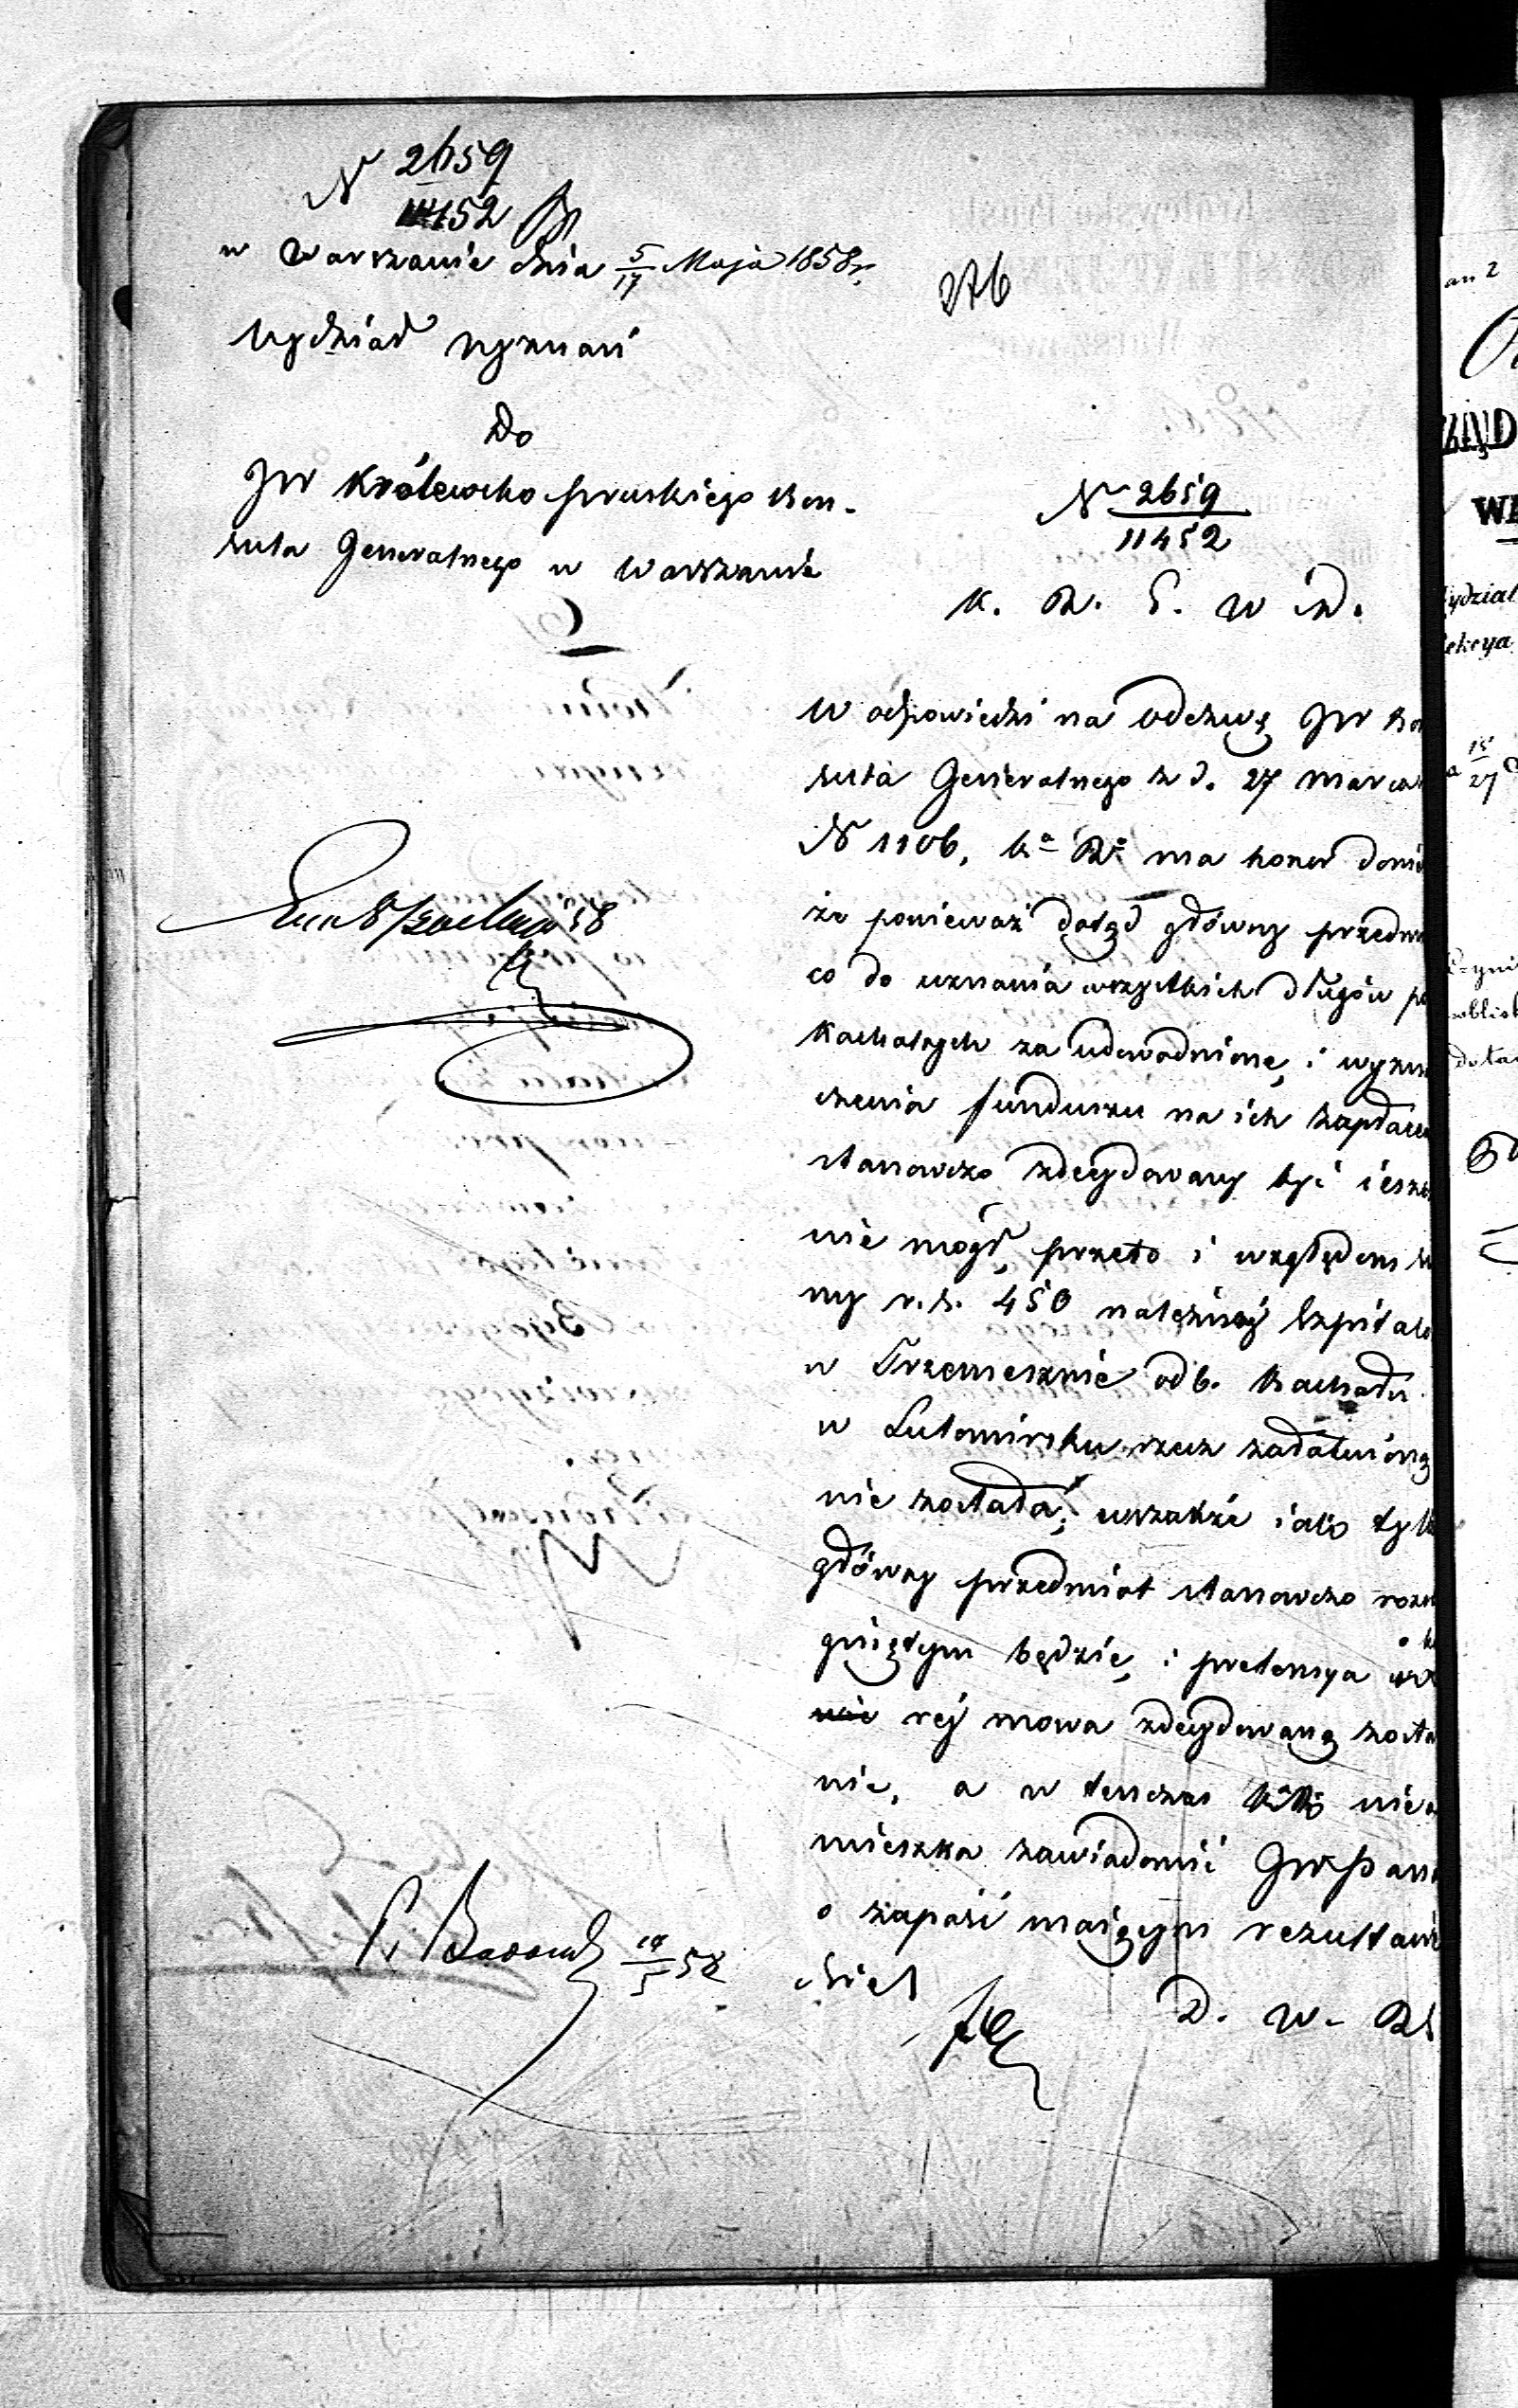 N 2659
11452
w Warszawie dnia 5/17 Maja 1858 r.
Wydział Wyznań
Do
JW Królewsko pruskiego Kon-
sula Generalnego w Warszawie
276
N 2659
11452
K. R. S. W i D.
W odpowiedzi na odezwę JW Ko
sula Generalnego z d. 27 Marca
N 1106, Ka Ra ma honor donie
że ponieważ dotąd główny przedm
co do uznania wszystkich długów po
Kachalnych za udowodnione, i wyzna
czenia funduszu na ich zapłace
stanowczo zdecydowany być iesz
nie mógł, przeto i względem su
my r.s. 450 należnéj Szpitalo
w Trzemesznie od b. Kachału
w Lutomirsku rzecz załatwioną
nie została; wszakże iak tylk
główny przedmiot stanowczo roz
gniętym będzie, i pretensya o k
réj mowa zdecydowaną zosta
nie, a w tenczas KR nie o
mieszka zawiadomić JWPan
o zapaść maiącym rezultaci
D. W. R
an 2
ZĄD
WE
ydział
ekcya
15
27